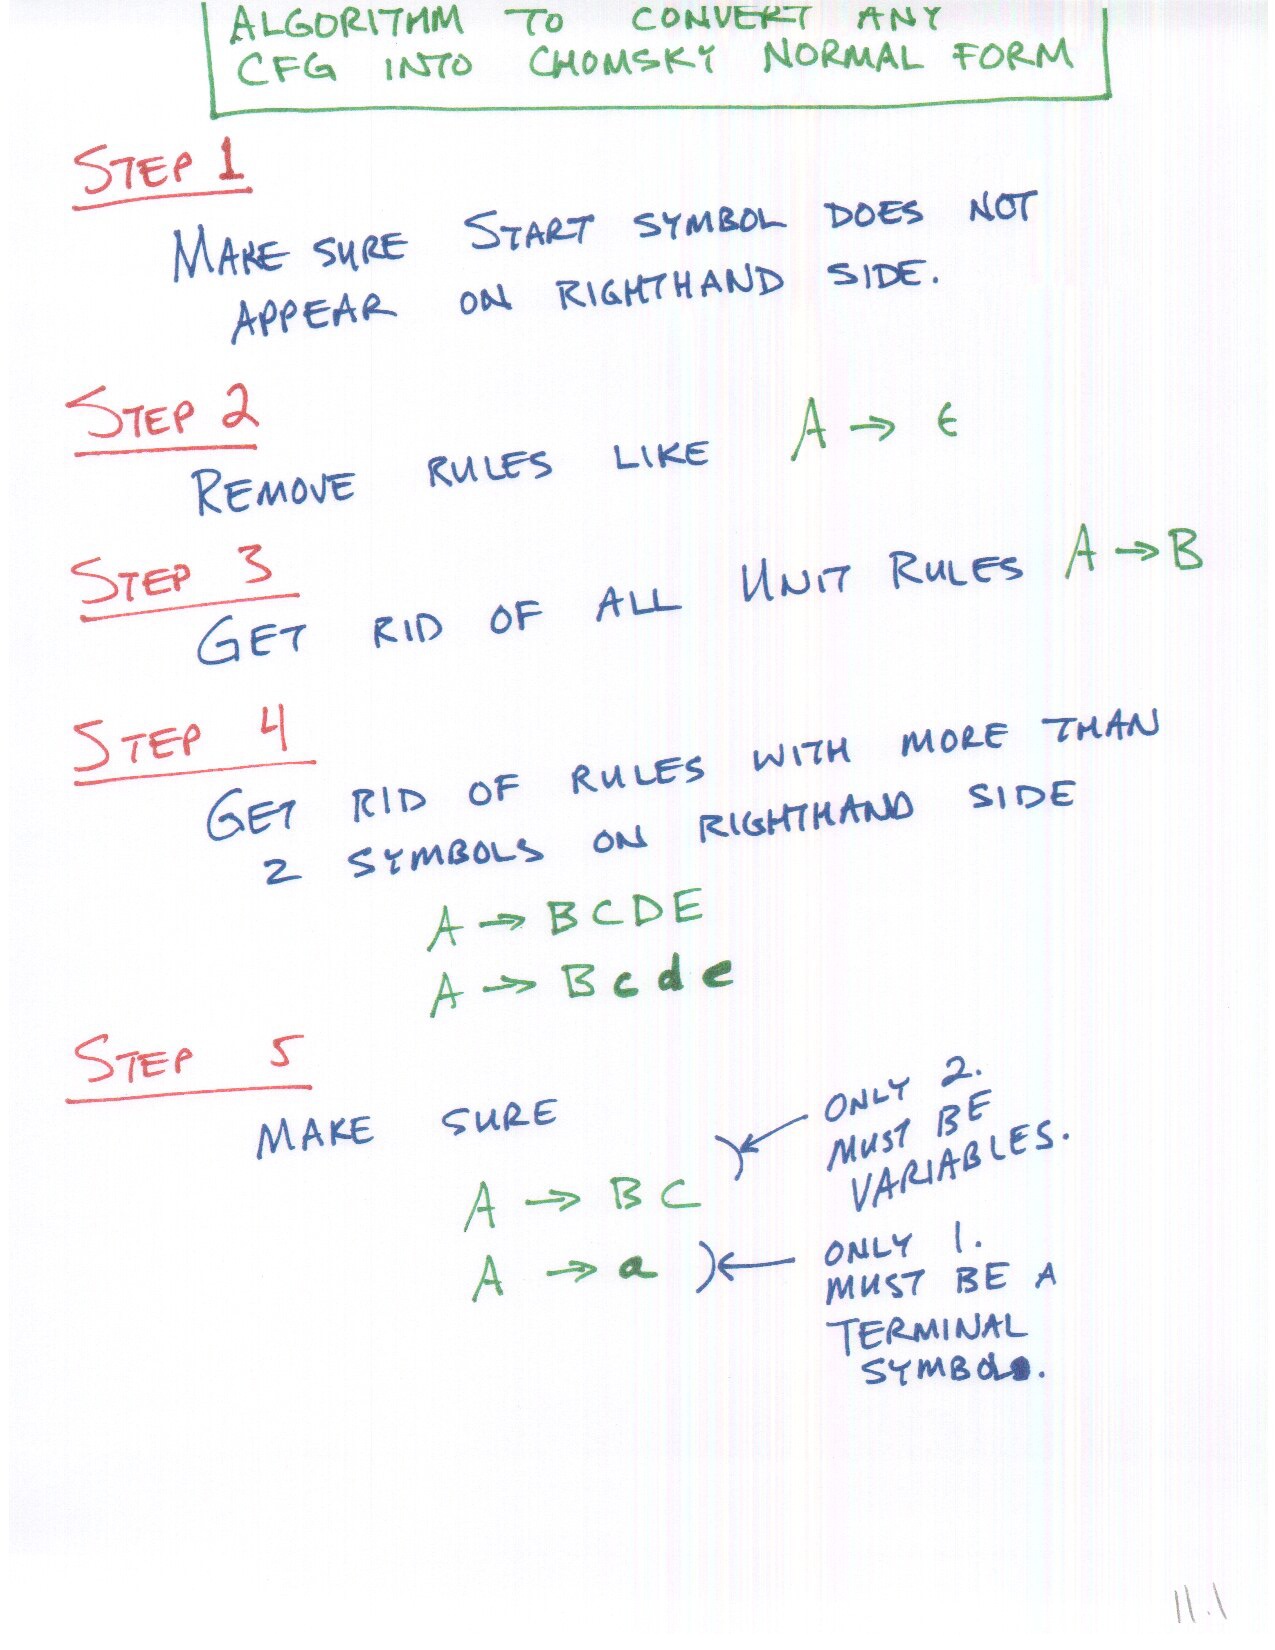 ALGORITHM TO CONVERT ANY
CFG INTO CHOMSKY NORMAL FORM
STEP 1
MAKE SURE START SYMBOL DOES NOT
APPEAR ON RIGHTHAND SIDE.
STEP 2
REMOVE RULES LIKE A → ε
STEP 3
GET RID OF ALL UNIT RULES A → B
STEP 4
GET RID OF RULES WITH MORE THAN
2 SYMBOLS ON RIGHTHAND SIDE
A → BCDE
A → Bcde
STEP 5
MAKE SURE
A → BC
ONLY 2.
MUST BE
VARIABLES.
A → a
ONLY 1.
MUST BE A
TERMINAL
SYMBOL.
11.1